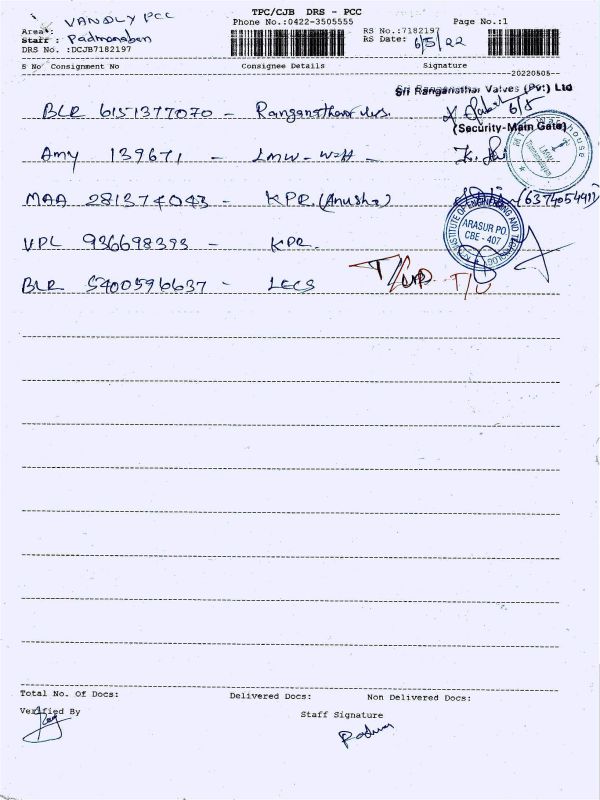 TPC/CJB DRS - PCC
VANDLY PCC
Phone No.:0422-3505555
Page No.:1
Area :
Staff : Padmanaben
RS No.:7182197
DRS No. :DCJB7182197
RS Date: 6/5/22
S No Consignment No Consignee Details Signature
--20220505--
Sri Ranganathar Valves (Pvt) Ltd
BLR 6151377070 - Ranganathar
6/5
(Security-Main Gate)
Amy 139671 - LMW - W-H -
MAA 281374043 - KPR (Anusha) (6374054917)
INSTITUTE OF ENGINEERING AND TECHNOLOGY
ARASUR PO
CBE - 407
VPL 936698393 - KPR
BLR 5400596637 - LECS
Total No. Of Docs: Delivered Docs: Non Delivered Docs:
Verified By
Staff Signature